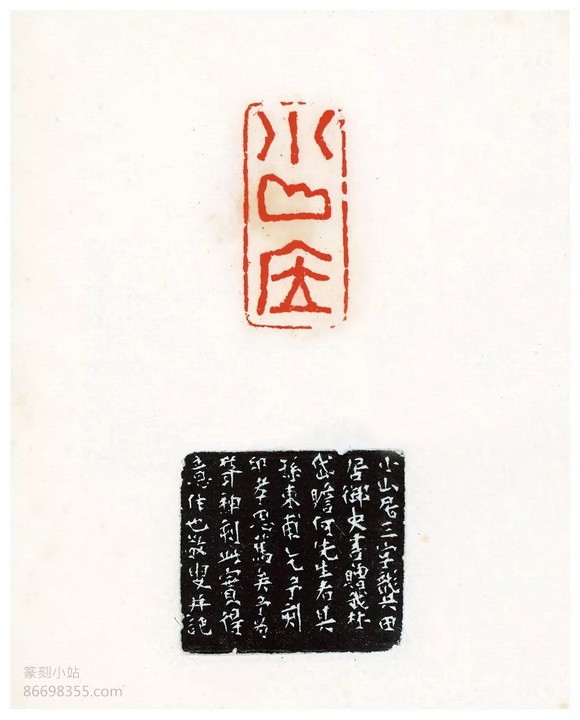 小山居
小山居三字龔田
居御史書贈我
岱瞻何先生者其
孫東甫乞予刻
印孝思篤矣予為
神刻此實得
意作也敬叟并記
篆刻小站
86698355.com